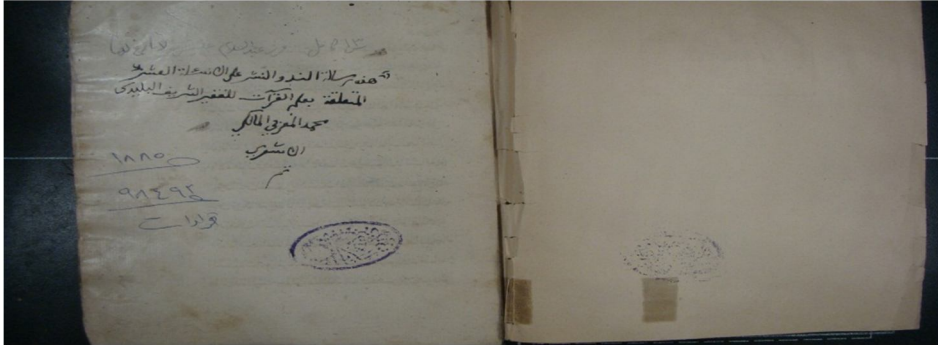 هذه رسالة الند والنشر على الاسئلة العشر
المتعلقة بعلم القرآت للفقير الشريف البليدى
محمد المغربي المالكي
الاشعري
تم
١٨٨٥
٩٨٤٩٢
قراءات